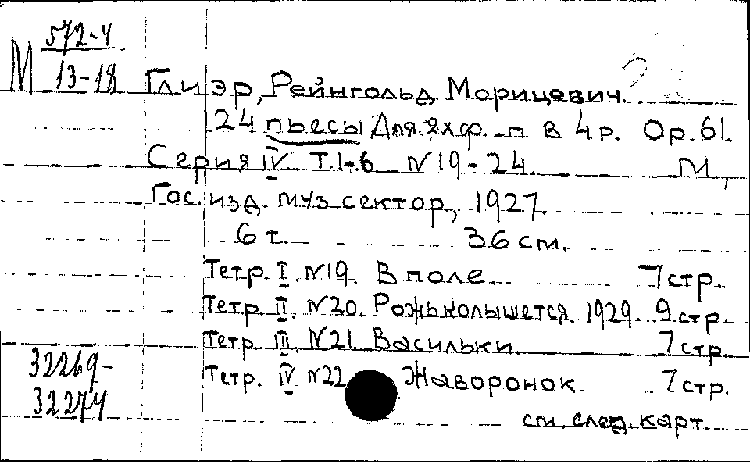 М 572-4
13-18
Глиэр, Рейнгольд Морицевич.
24 пьесы для 2х ф.-п в 4 р. Op. 61.
Серия IV Т. 1-6 N 19-24 М.,
Гос. изд. муз. сектор, 1927
6 т. 36 см.
Тетр. I. N19. В поле 7 стр.
Тетр. II. N20. Рожь колышется. 1929 9 стр.
Тетр III N21 Васильки 7 стр
Тетр. IV N22 Жаворонок. 7 стр.
32269-
32274
см. след. карт.